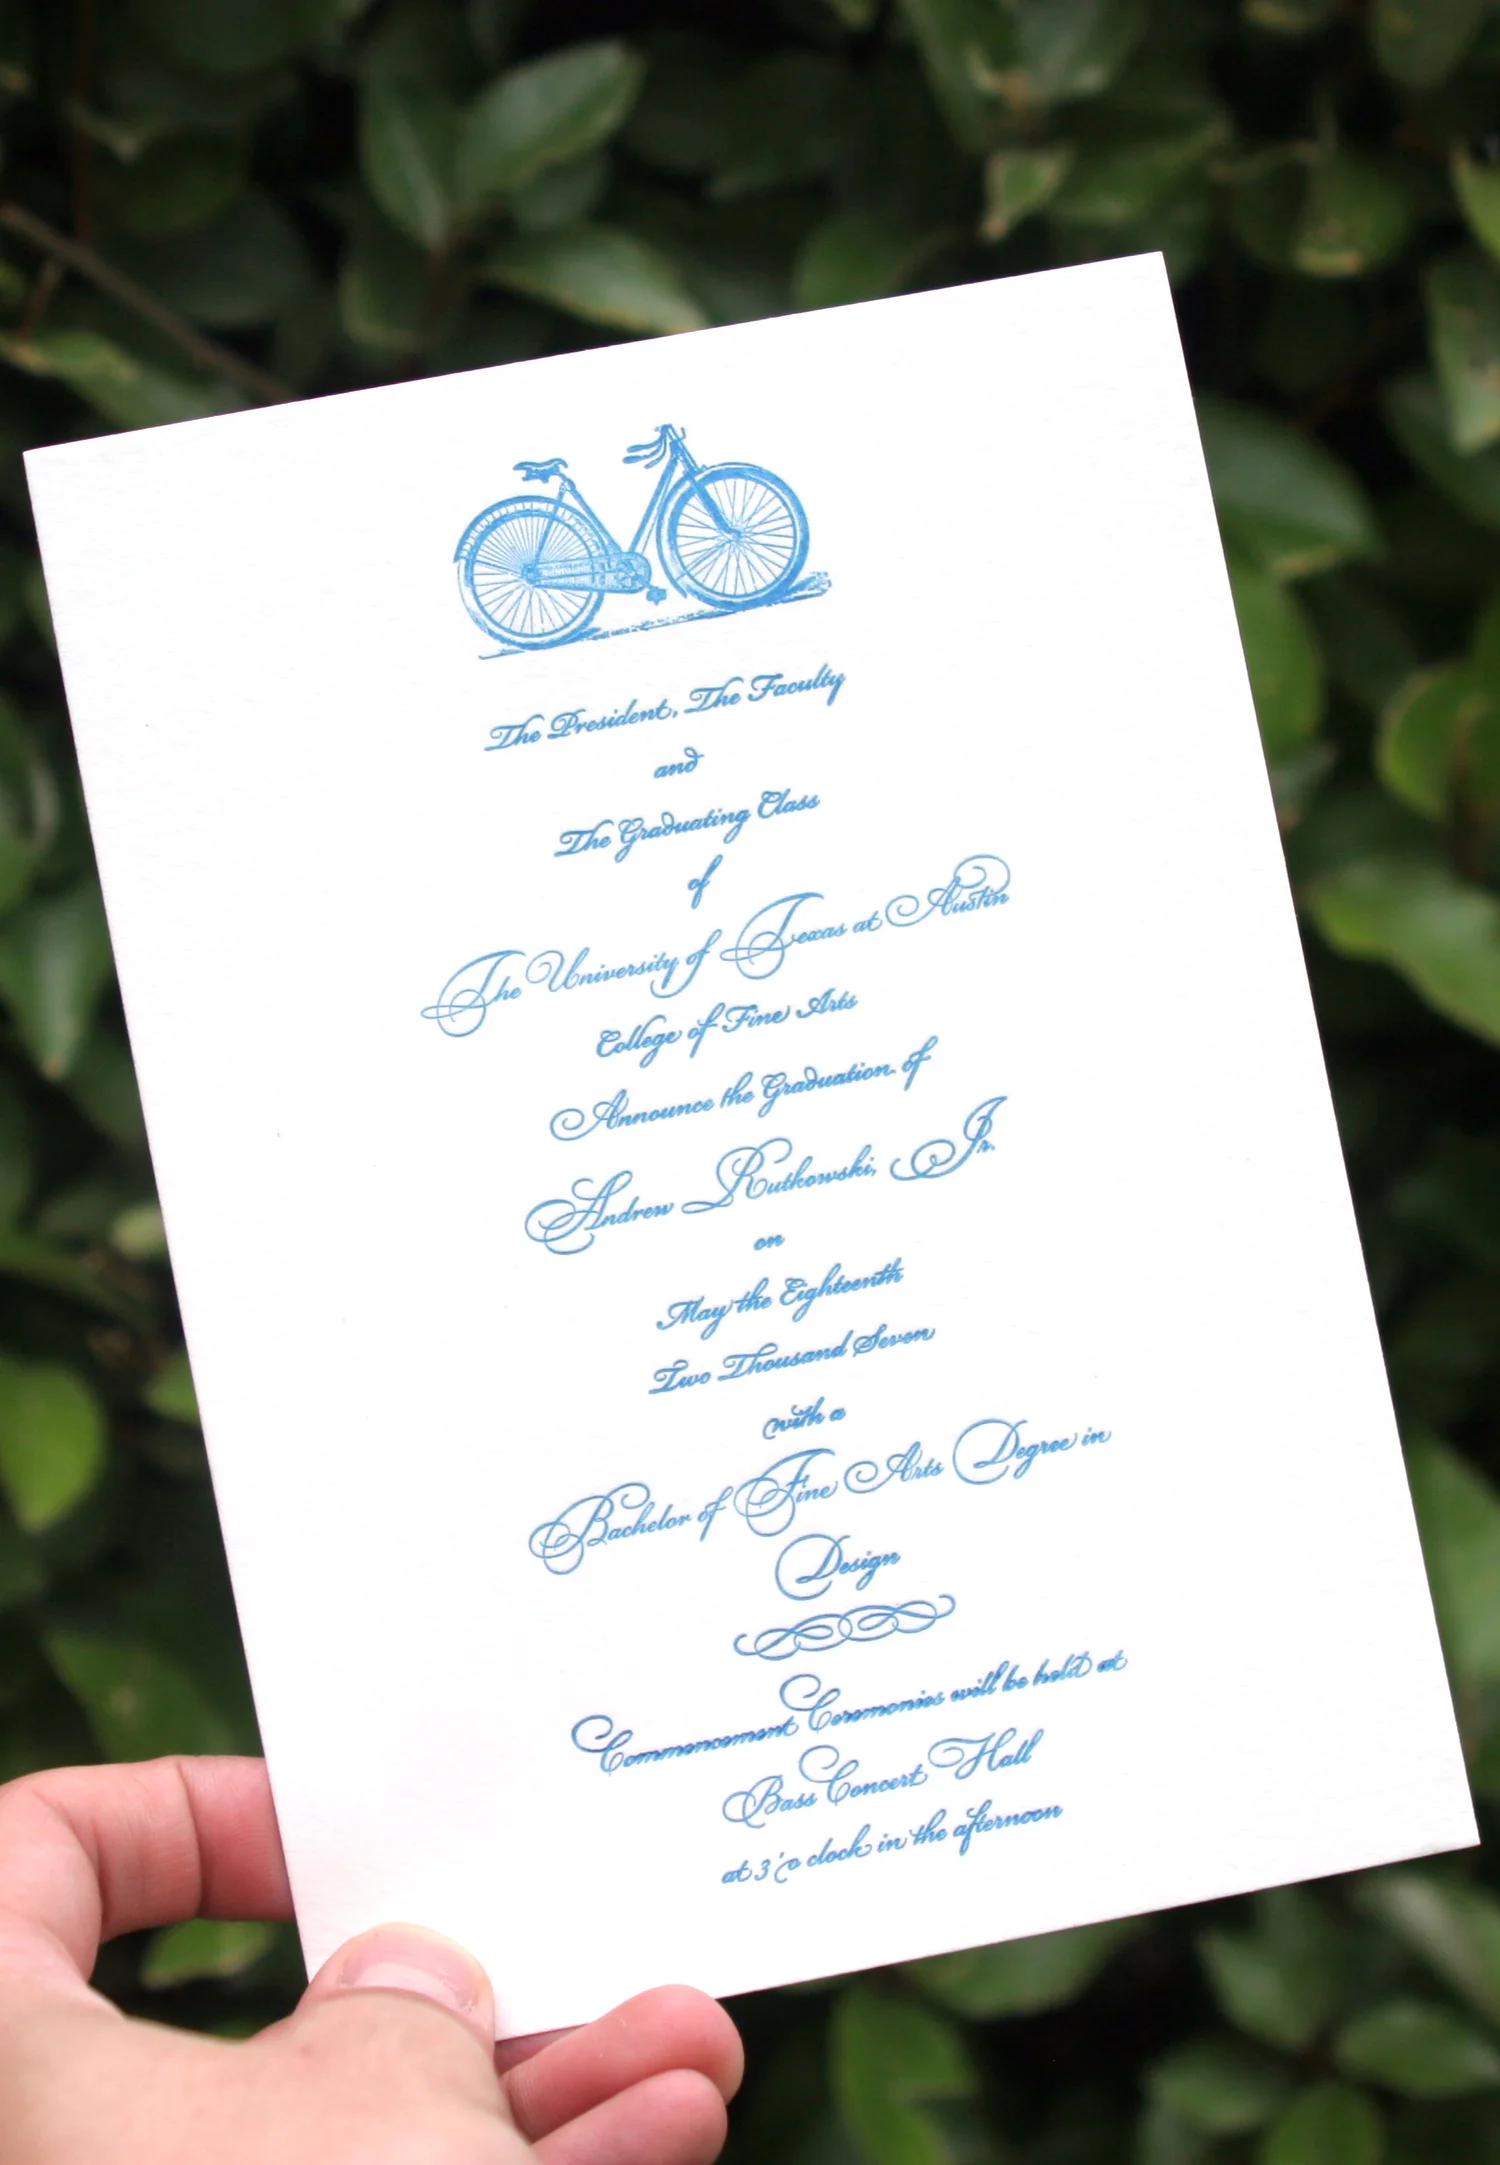 The President, The Faculty
and
The Graduating Class
of
The University of Texas at Austin
College of Fine Arts
Announce the Graduation of
Andrew Rutkowski, Jr.
on
May the Eighteenth
Two Thousand Seven
with a
Bachelor of Fine Arts Degree in
Design
Commencement Ceremonies will be held at
Bass Concert Hall
at 3 'o clock in the afternoon